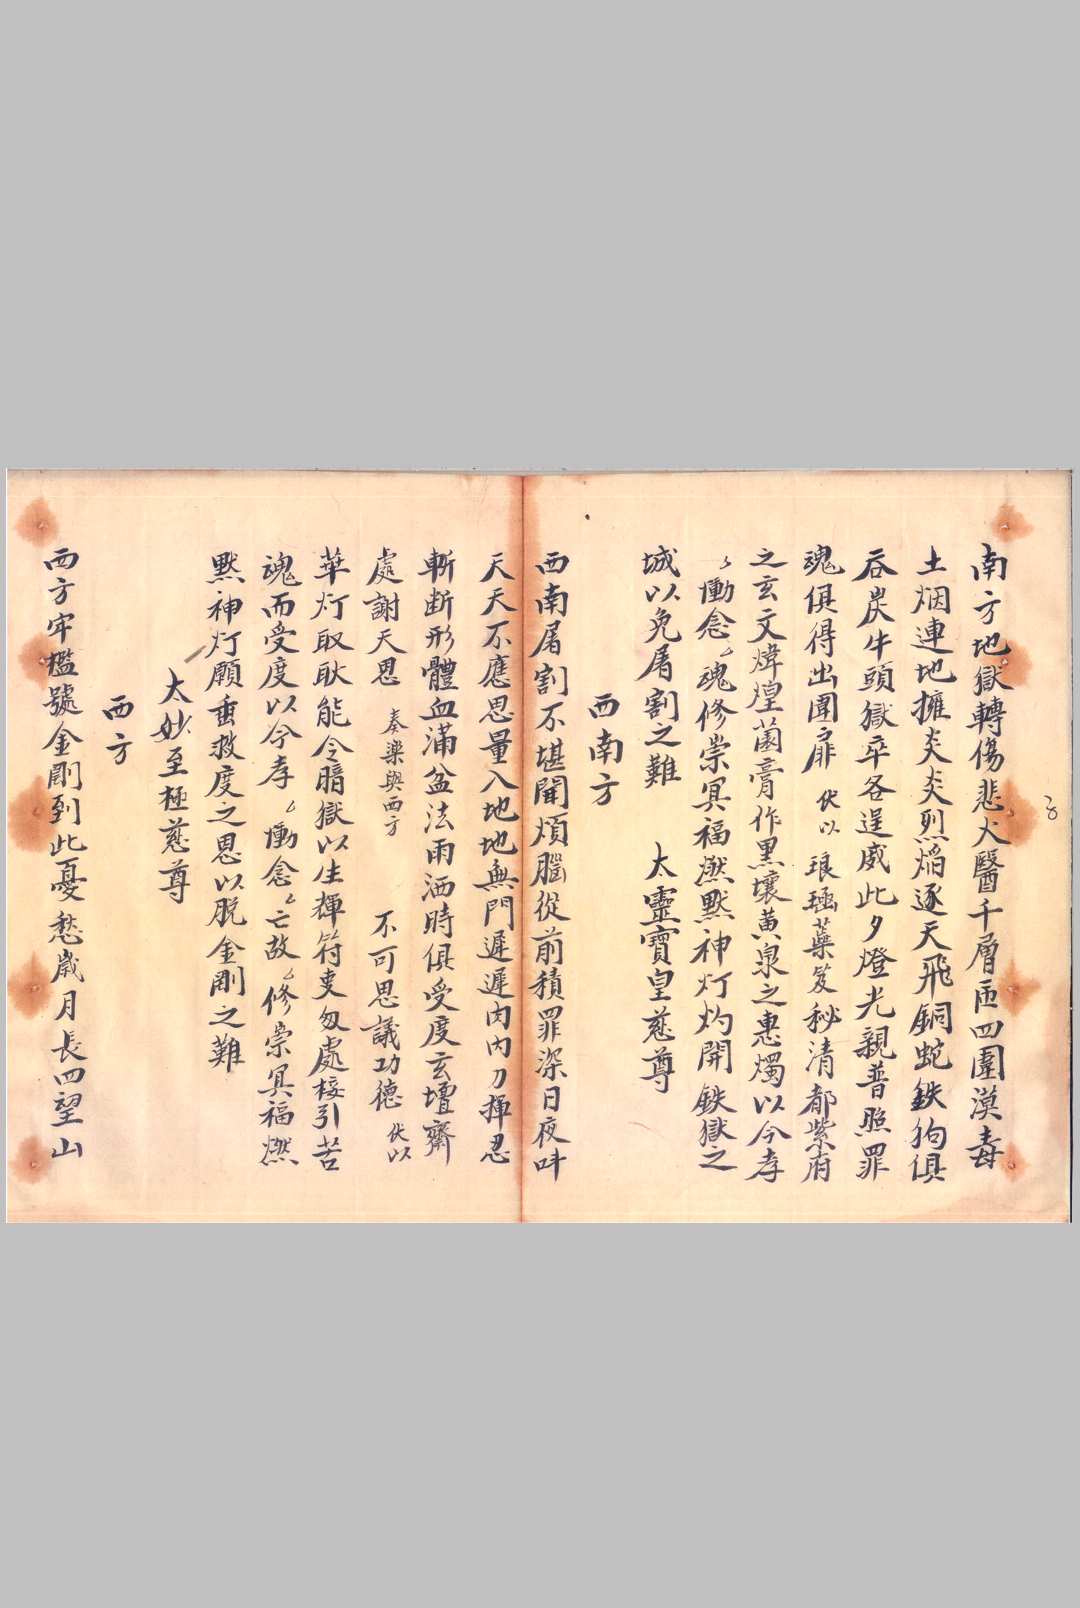 南方地獄轉傷悲犬醫千層匝四圍漠毒
土烟連地擁炎炎烈焰逐天飛銅蛇鉄狗俱
吞炭牛頭獄卒各逞威此夕燈光親普照罪
魂俱得出圍扉 伏以 琅函蘂笈秘清都紫府
之玄文煒煌蘭膏作黑壤黄泉之惠燭以今孝
〻慟念〻魂修崇冥福燃點神灯灼開鉄獄之
城以免屠割之難 太靈寶皇慈尊
西南方
西南屠割不堪聞煩腦從前積罪深日夜呌
天天不應思量入地地無門遲遲肉内刀揮忍
斬断形體血滿盆法雨洒時俱受度玄壇齋
處謝天恩 奏樂與西方 不可思議功德 伏以
華灯取耿能令暗獄以生輝符叓匆處接引苦
魂而受度以今孝〻慟念〻亡故〻修崇冥福燃
點神灯願垂救度之恩以脱金剛之難
太妙至極慈尊
西方
西方牢檻號金剛到此憂愁歲月長四望山
8